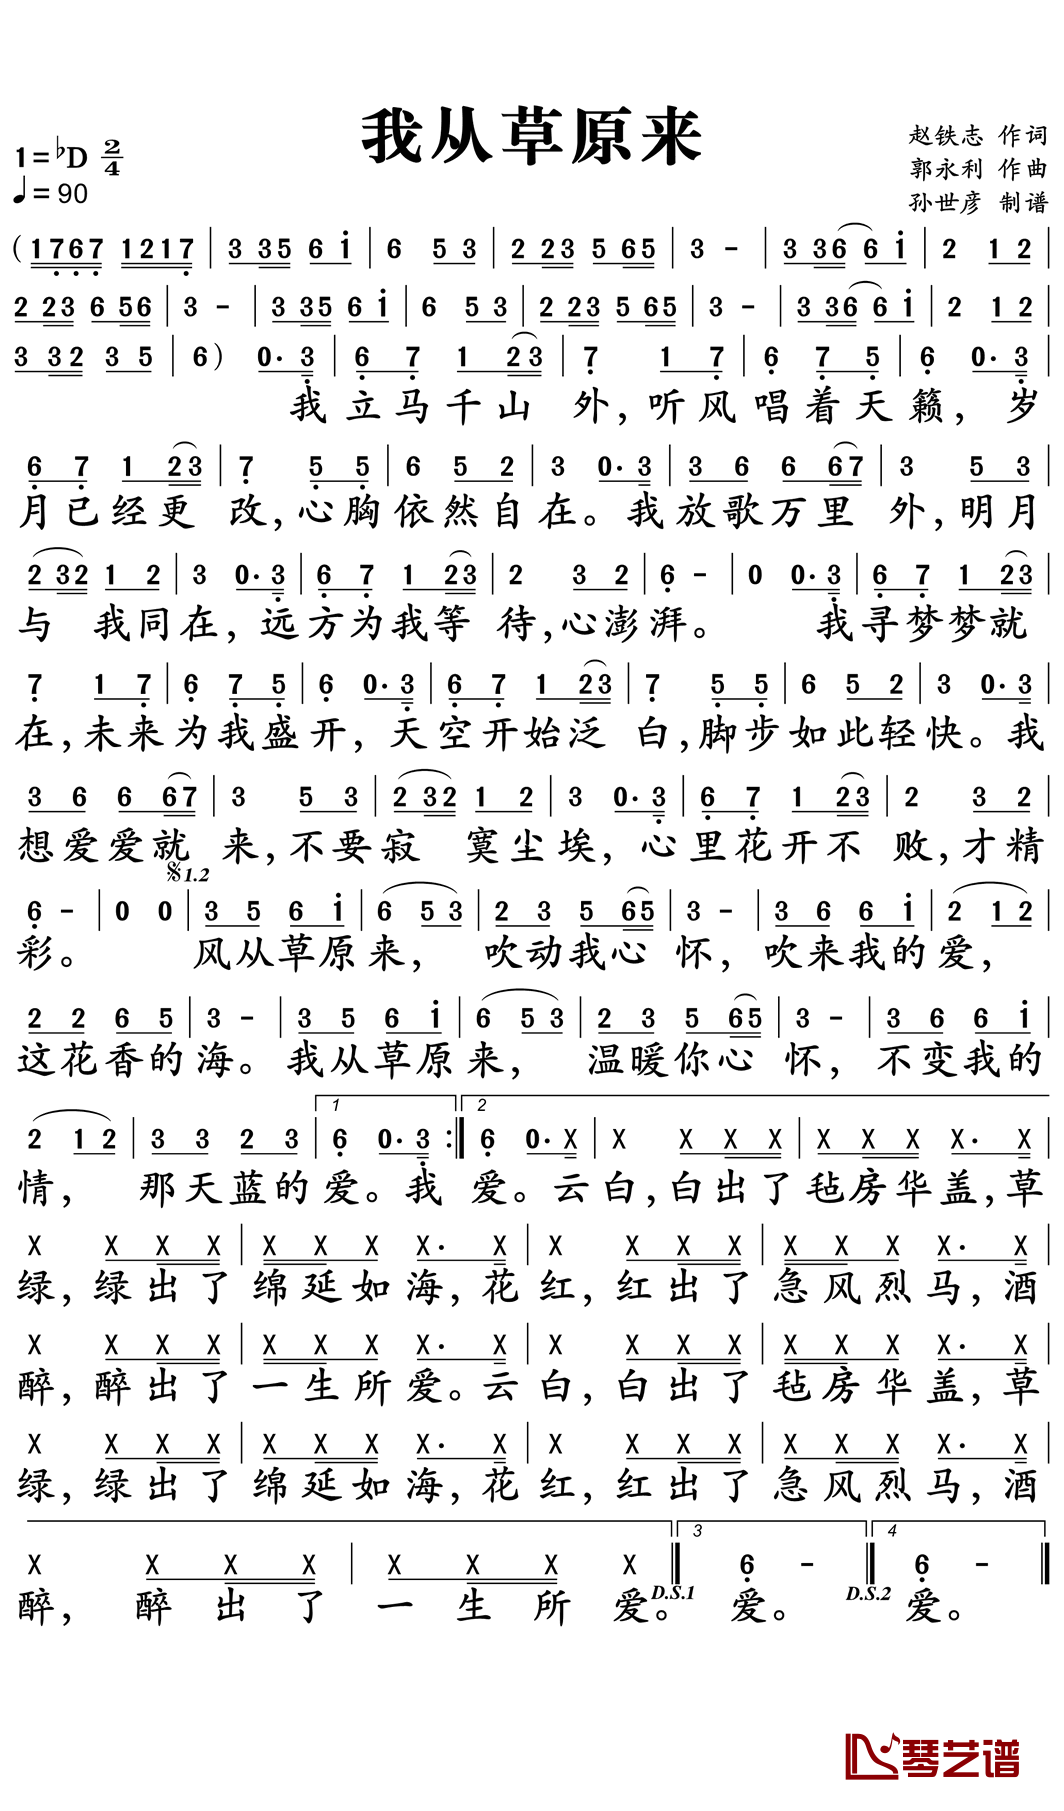 我从草原来
1=♭D 2/4
♩=90
赵铁志 作词
郭永利 作曲
孙世彦 制谱
(1767 1217 | 3 35 6 i | 6 5 3 | 2 23 5 65 | 3 - | 3 36 6 i | 2 1 2 |
2 23 6 56 | 3 - | 3 35 6 i | 6 5 3 | 2 23 5 65 | 3 - | 3 36 6 i | 2 1 2 |
3 32 3 5 | 6 ) 0· 3 | 6 7 1 23 | 7 1 7 | 6 7 5 | 6 0· 3 |
我 立马千山 外,听风唱着天籁, 岁
6 7 1 23 | 7 5 5 | 6 5 2 | 3 0· 3 | 3 6 6 67 | 3 5 3 |
月已经更 改,心胸依然自在。我放歌万里 外,明月
2 32 1 2 | 3 0· 3 | 6 7 1 23 | 2 3 2 | 6 - | 0 0· 3 | 6 7 1 23 |
与 我同在, 远方为我等 待,心澎湃。 我寻梦梦就
7 1 7 | 6 7 5 | 6 0· 3 | 6 7 1 23 | 7 5 5 | 6 5 2 | 3 0· 3 |
在,未来为我盛开, 天空开始泛 白,脚步如此轻快。我
3 6 6 67 | 3 5 3 | 2 32 1 2 | 3 0· 3 | 6 7 1 23 | 2 3 2 |
想爱爱就 来,不要寂 寞尘埃, 心里花开不 败,才精
𝄋1.2
6 - | 0 0 | 3 5 6 i | 6 5 3 | 2 3 5 65 | 3 - | 3 6 6 i | 2 1 2 |
彩。 风从草原来, 吹动我心 怀, 吹来我的爱,
2 2 6 5 | 3 - | 3 5 6 i | 6 5 3 | 2 3 5 65 | 3 - | 3 6 6 i |
这花香的海。 我从草原来, 温暖你心 怀, 不变我的
1 2
2 1 2 | 3 3 2 3 | 6 0· 3 :| 6 0· X | X X X X | X X X X· X |
情, 那天蓝的爱。我 爱。云白,白出了毡房华盖,草
X X X X | X X X X· X | X X X X | X X X X· X |
绿,绿出了绵延如海,花红,红出了急风烈马,酒
X X X X | X X X X· X | X X X X | X X X X· X |
醉,醉出了一生所爱。云白,白出了毡房华盖,草
X X X X | X X X X· X | X X X X | X X X X· X |
绿,绿出了绵延如海,花红,红出了急风烈马,酒
3 4
X X X X | X X X X | 6 - | 6 - |
D.S.1 D.S.2
醉, 醉出了一生所爱。 爱。 爱。
琴艺谱